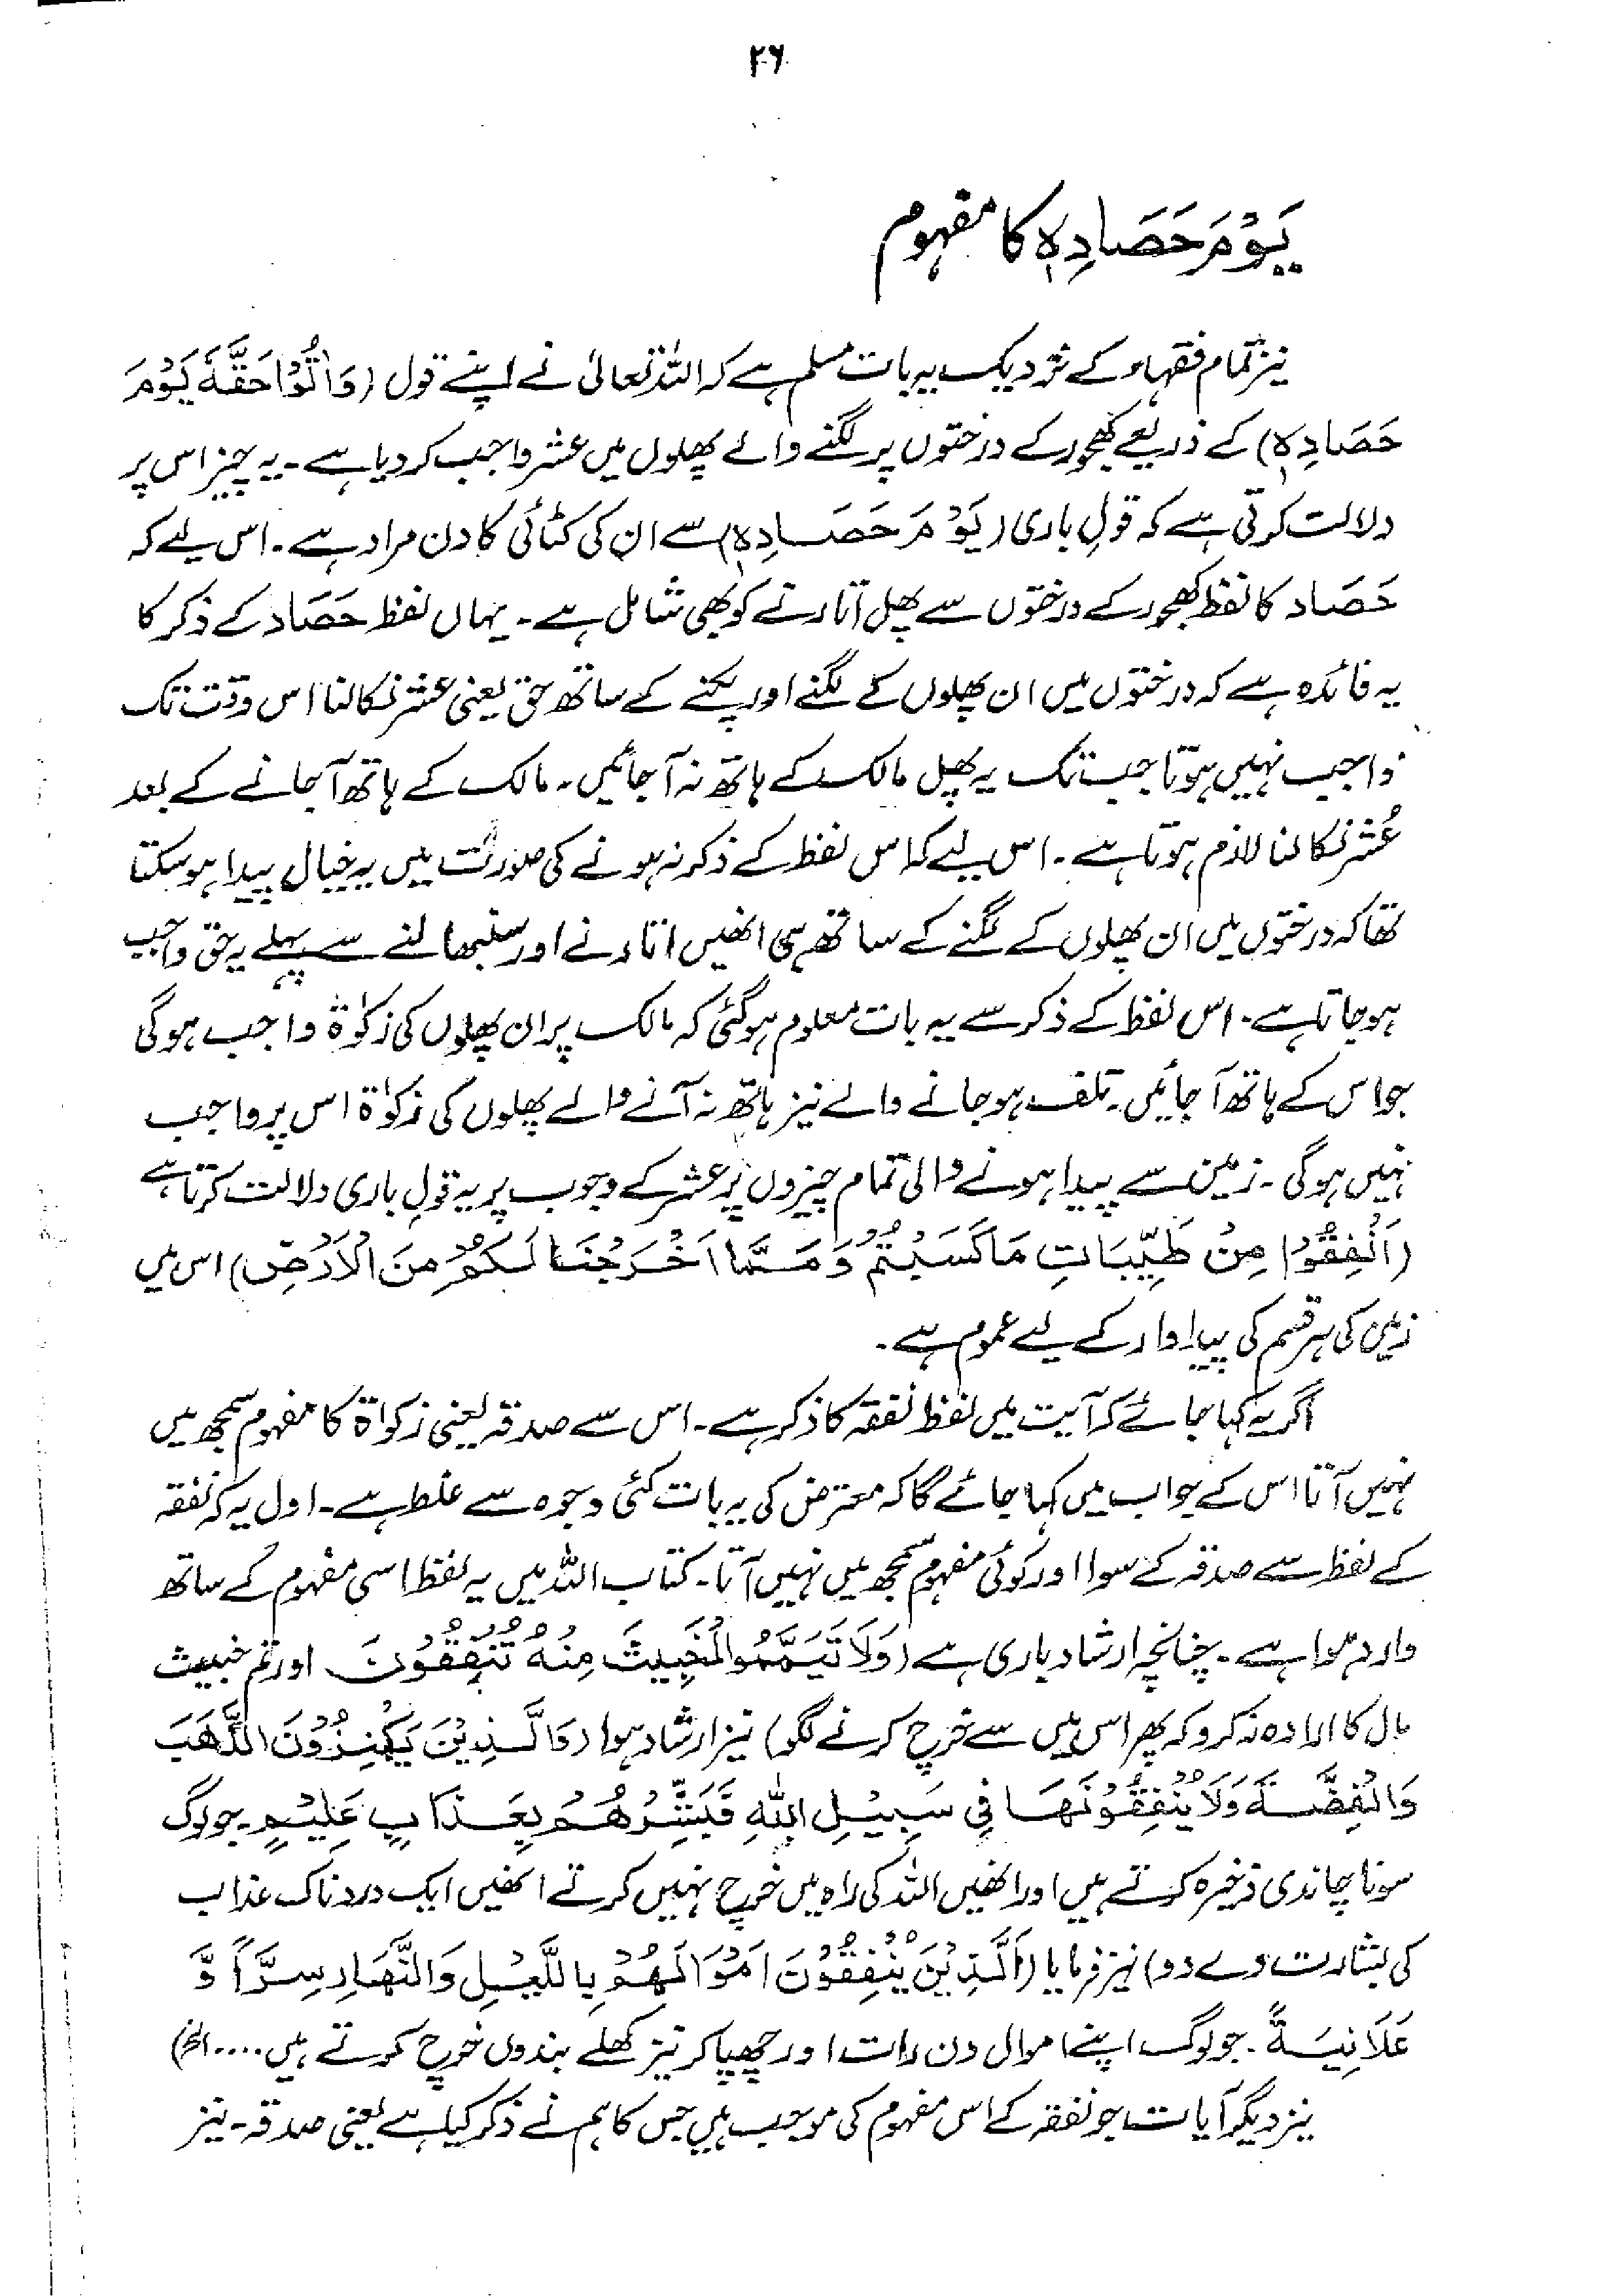 ۲۶
يَوْمَ حَصَادِهٖ کا مفہوم
نیز تمام فقہاء کے نزدیک یہ بات مسلم ہے کہ اللہ تعالیٰ نے اپنے قول (وَاٰتُوْا حَقَّهٗ يَوْمَ
حَصَادِهٖ) کے ذریعے کھجور کے درختوں پر لگنے والے پھلوں میں عشر واجب کر دیا ہے۔ یہ چیز اس پر
دلالت کرتی ہے کہ قولِ باری (يَوْمَ حَصَادِهٖ) سے ان کی کٹائی کا دن مراد ہے۔ اس لیے کہ
حَصَاد کا لفظ کھجور کے درختوں سے پھل اتارنے کو بھی شامل ہے۔ یہاں لفظ حَصَاد کے ذکر کا
یہ فائدہ ہے کہ درختوں میں ان پھلوں کے لگنے اور پکنے کے ساتھ حق یعنی عشر نکالنا اس وقت تک
واجب نہیں ہوتا جب تک یہ پھل مالک کے ہاتھ نہ آ جائیں۔ مالک کے ہاتھ آ جانے کے بعد
عُشر نکالنا لازم ہوتا ہے۔ اس لیے کہ اس لفظ کے ذکر نہ ہونے کی صورت میں یہ خیال پیدا ہو سکتا
تھا کہ درختوں میں ان پھلوں کے لگنے کے ساتھ ہی انھیں اتارنے اور سنبھالنے سے پہلے یہ حق واجب
ہو جاتا ہے۔ اس لفظ کے ذکر سے یہ بات معلوم ہو گئی کہ مالک پر ان پھلوں کی زکوٰۃ واجب ہو گی
جو اس کے ہاتھ آ جائیں۔ تلف ہو جانے والے نیز ہاتھ نہ آنے والے پھلوں کی زکوٰۃ اس پر واجب
نہیں ہو گی۔ زمین سے پیدا ہونے والی تمام چیزوں پر عشر کے وجوب پر یہ قولِ باری دلالت کرتا ہے
(اَنْفِقُوْا مِنْ طَيِّبَاتِ مَا كَسَبْتُمْ وَمِمَّا اَخْرَجْنَا لَكُمْ مِنَ الْاَرْضِ) اس میں
زمین کی ہر قسم کی پیداوار کے لیے عموم ہے۔
اگر یہ کہا جائے کہ آیت میں لفظ نفقہ کا ذکر ہے۔ اس سے صدقہ یعنی زکواۃ کا مفہوم سمجھ میں
نہیں آتا اس کے جواب میں کہا جائے گا کہ معترض کی یہ بات کئی وجوہ سے غلط ہے۔ اول یہ کہ نفقہ
کے لفظ سے صدقہ کے سوا اور کوئی مفہوم سمجھ میں نہیں آتا۔ کتاب اللہ میں یہ لفظ اسی مفہوم کے ساتھ
وارد ہوا ہے۔ چنانچہ ارشاد باری ہے (وَلَا تَيَمَّمُوا الْخَبِيثَ مِنْهُ تُنْفِقُوْنَ اور تم خبیث
مال کا ارادہ نہ کرو کہ پھر اس میں سے خرچ کرنے لگو) نیز ارشاد ہوا (وَالَّذِيْنَ يَكْنِزُوْنَ الذَّهَبَ
وَالْفِضَّةَ وَلَا يُنْفِقُوْنَهَا فِيْ سَبِيْلِ اللهِ فَبَشِّرْهُمْ بِعَذَابٍ عَلِيْمٍ۔ جو لوگ
سونا چاندی ذخیرہ کرتے ہیں اور انھیں اللہ کی راہ میں خرچ نہیں کرتے انھیں ایک دردناک عذاب
کی بشارت دے دو) نیز فرمایا (اَلَّذِيْنَ يُنْفِقُوْنَ اَمْوَالَهُمْ بِاللَّيْلِ وَالنَّهَارِ سِرًّا وَّ
عَلَانِيَةً۔ جو لوگ اپنے اموال دن رات اور چھپا کر نیز کھلے بندوں خرچ کرتے ہیں .... الخ)
نیز دیگر آیات جو نفقہ کے اس مفہوم کی موجب ہیں جس کا ہم نے ذکر کیا ہے یعنی صدقہ۔ نیز